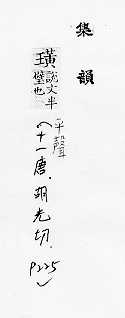 集韻
璜說文半
璧也
平聲
(十一唐．胡光切．
P225)